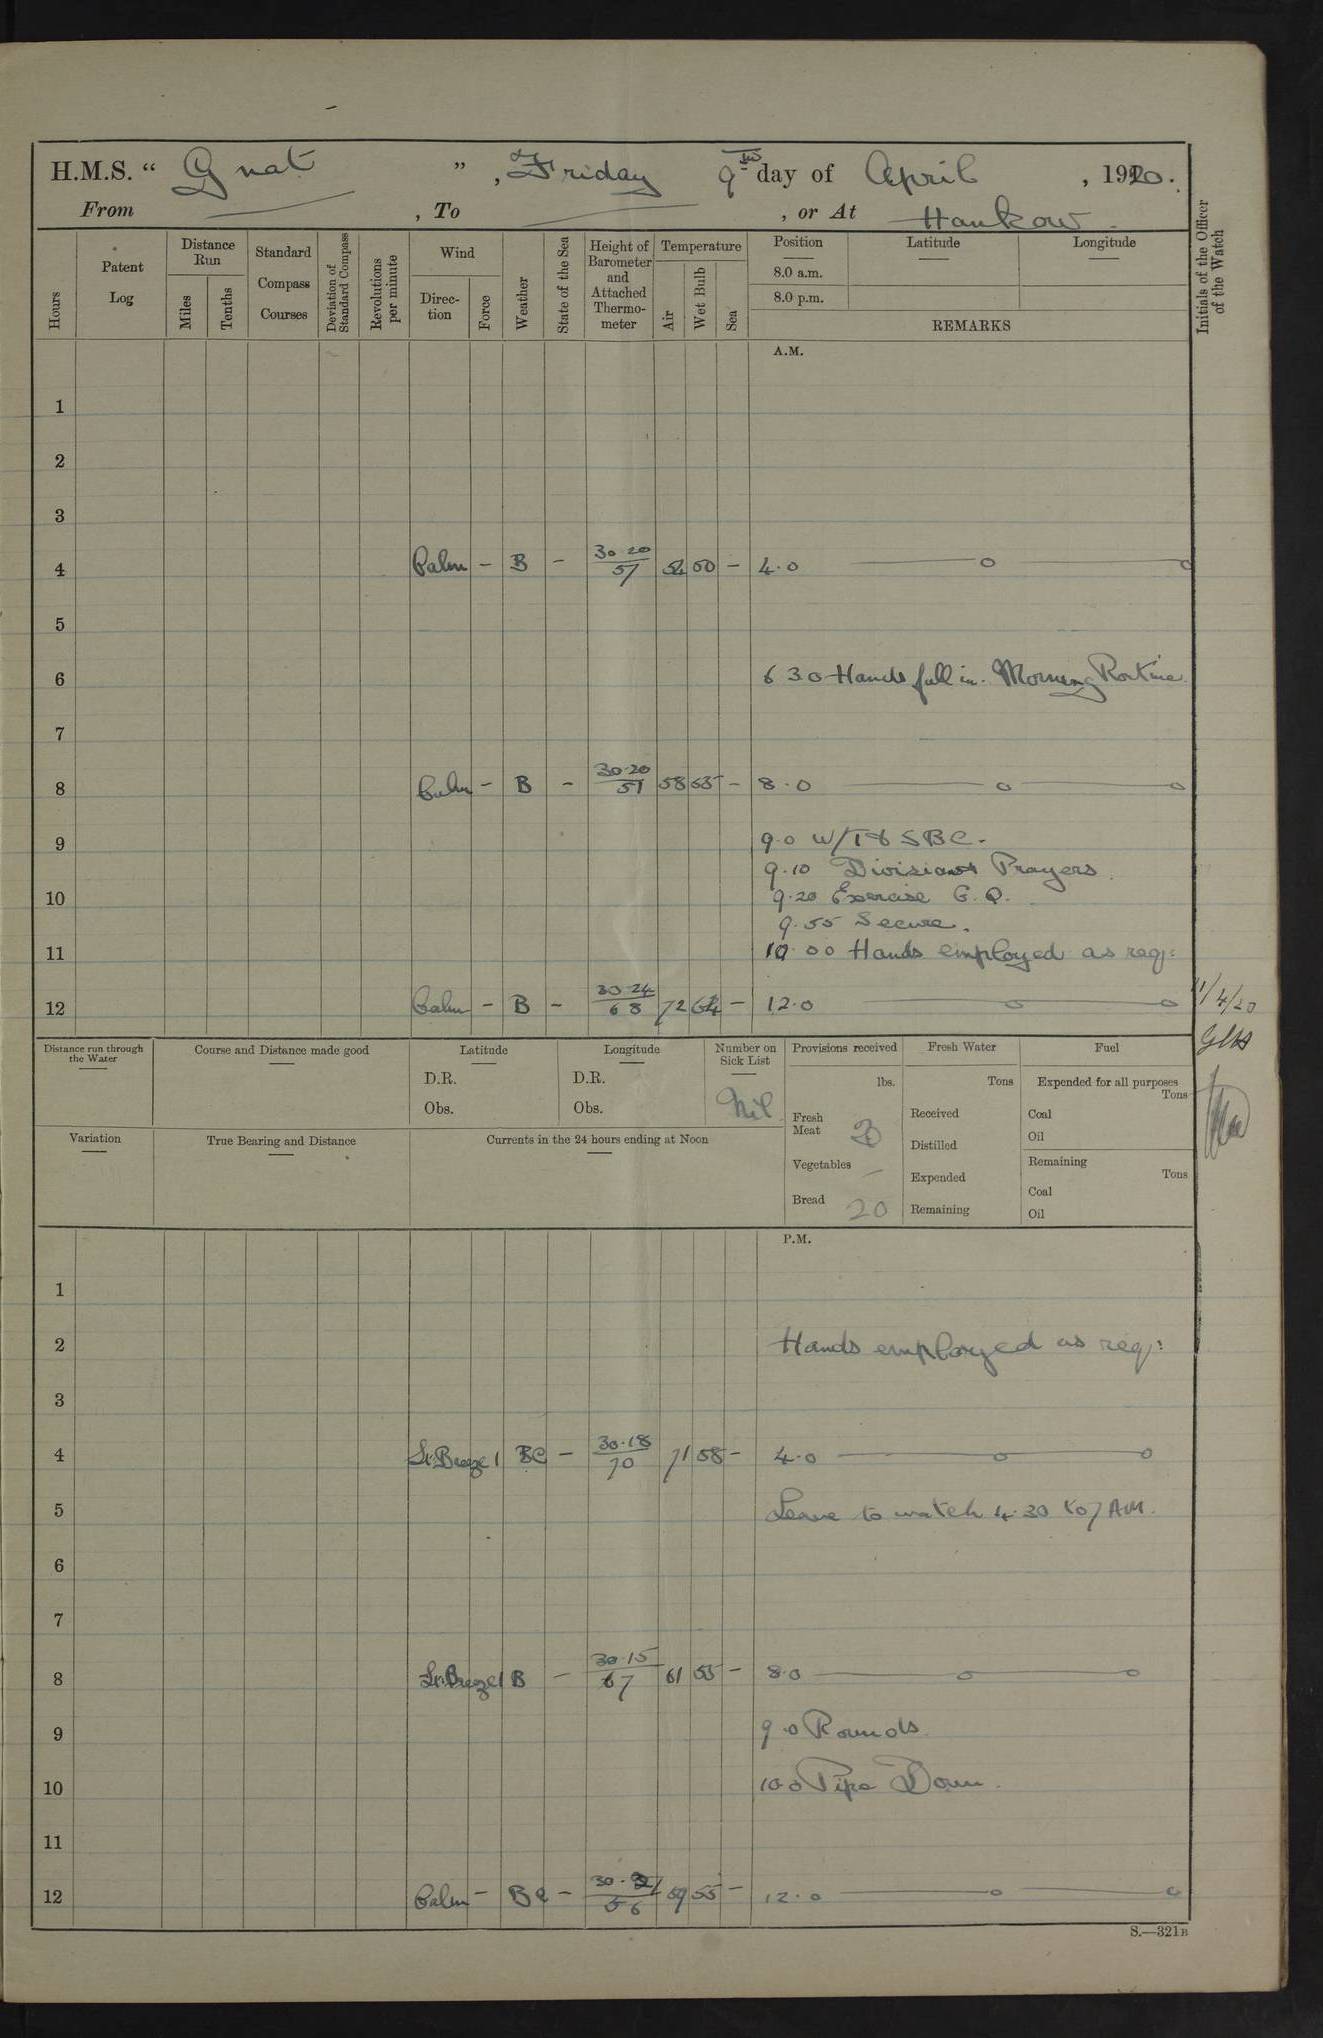 H.M.S. “ Gnat ” , Friday 9th day of April , 1920.
From , To , or At Hankow.
Hours
Patent Log
Distance Run
Miles
Tenths
Standard Compass Courses
Deviation of Standard Compass
Revolutions per minute
Wind
Direction
Force
Weather
State of the Sea
Height of Barometer and Attached Thermometer
Temperature
Air
Wet Bulb
Sea
Position
Latitude
Longitude
8.0 a.m.
8.0 p.m.
REMARKS
Initials of the Officer of the Watch
A.M.
1
2
3
4 Calm – B – 30.20 57 54 50 – 4.0
5
6 6 30 Hands fall in. Morning Routine
7
8 Calm – B – 30.20 51 58 – 8.0
9 9.0 W/T & SBC.
9.10 Divisions Prayers.
10 9.20 Exercise G.Q.
9.55 Secure.
11 10.00 Hands employed as req:
12 Calm – B – 30.24 68 72 64 – 12.0
11/4/20
Distance run through the Water
Course and Distance made good
Latitude
D.R.
Obs.
Longitude
D.R.
Obs.
Number on Sick List
Nil
Provisions received
lbs.
Fresh Meat
Vegetables –
Bread 20
Fresh Water
Tons
Received
Distilled
Expended
Remaining
Fuel
Expended for all purposes
Tons
Coal
Oil
Remaining
Tons
Coal
Oil
Variation
True Bearing and Distance
Currents in the 24 hours ending at Noon
P.M.
1
2 Hands employed as req:
3
4 Lt.Breeze 1 BC – 30.18 70 71 58 – 4.0
5 Leave to watch 4.30 to 7 AM.
6
7
8 Lt.Breeze 1 B – 30.15 67 61 55 – 8.0
9 9.0 Rounds.
10 10.0 Pipe Down.
11
12 Calm – BC – 56 59 55 – 12.0
S.—321B